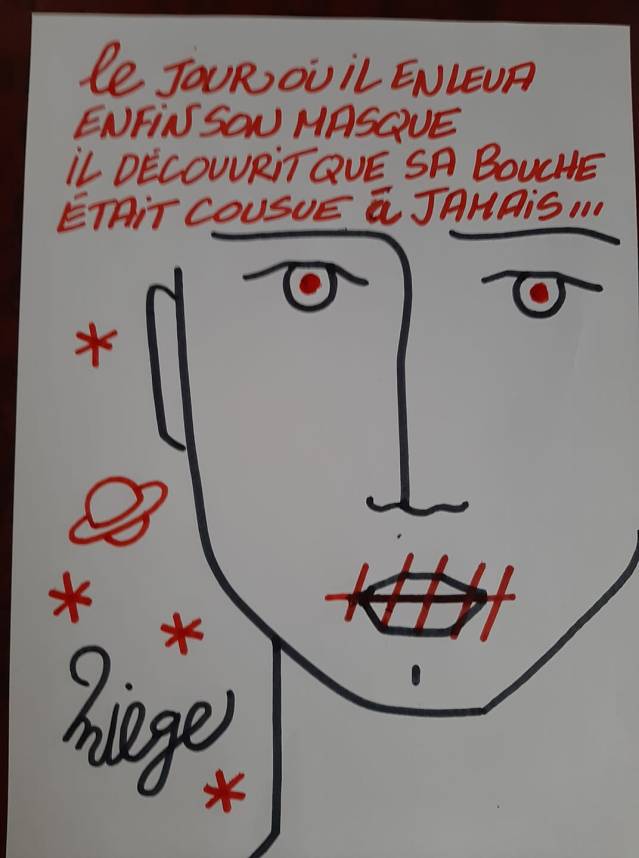 le JOUR OÙ iL ENLEVA
ENFiN SON MASQUE
iL DÉCOUVRiT QUE SA BOUCHE
ÉTAiT COUSUE à JAMAiS...
Miege